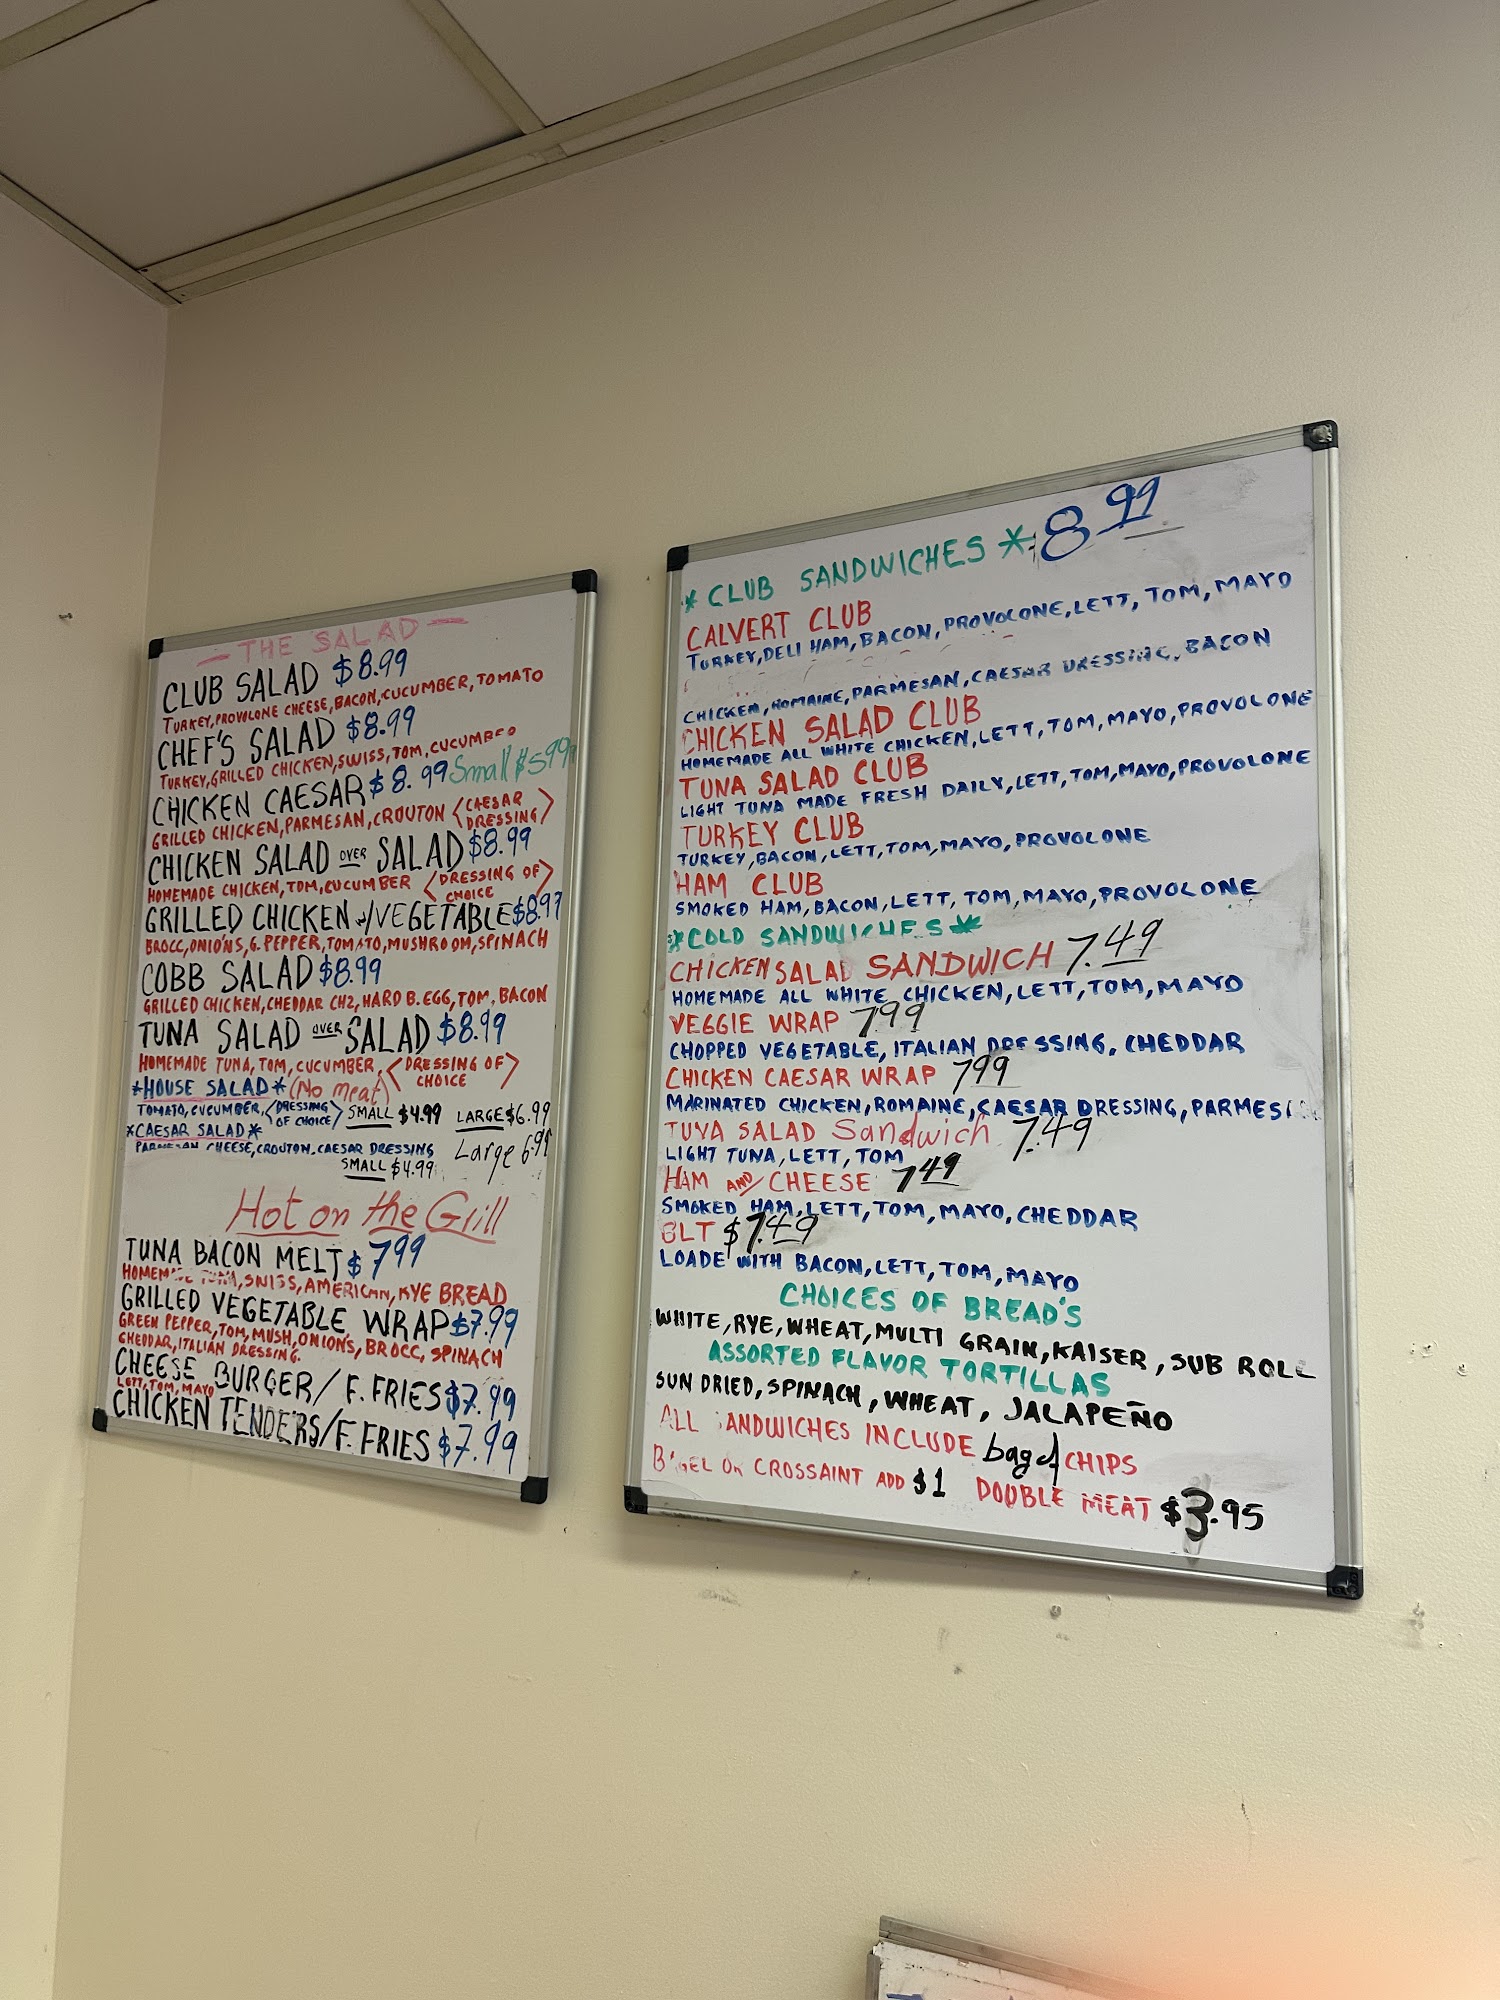 — THE SALAD —
CLUB SALAD $8.99
TURKEY, PROVOLONE CHEESE, BACON, CUCUMBER, TOMATO
CHEF'S SALAD $8.99
TURKEY, GRILLED CHICKEN, SWISS, TOM, CUCUMBER
CHICKEN CAESAR $8.99 Small $5.99
GRILLED CHICKEN, PARMESAN, CROUTON <CAESAR DRESSING>
CHICKEN SALAD OVER SALAD $8.99
HOMEMADE CHICKEN, TOM, CUCUMBER <DRESSING OF CHOICE>
GRILLED CHICKEN w/VEGETABLE $8.97
BROCC, ONIONS, G. PEPPER, TOMATO, MUSHROOM, SPINACH
COBB SALAD $8.99
GRILLED CHICKEN, CHEDDAR CHZ, HARD B. EGG, TOM, BACON
TUNA SALAD OVER SALAD $8.99
HOMEMADE TUNA, TOM, CUCUMBER, <DRESSING OF CHOICE>
*HOUSE SALAD* (No meat)
TOMATO, CUCUMBER, <DRESSING OF CHOICE> SMALL $4.99 LARGE $6.99
*CAESAR SALAD*
PARMESAN CHEESE, CROUTON, CAESAR DRESSING Large 6.99
SMALL $4.99
Hot on the Grill
TUNA BACON MELT $7.99
HOMEMADE TUNA, SWISS, AMERICAN, RYE BREAD
GRILLED VEGETABLE WRAP $7.99
GREEN PEPPER, TOM, MUSH, ONIONS, BROCC, SPINACH
CHEDDAR, ITALIAN DRESSING.
CHEESE BURGER/F. FRIES $7.99
LETT, TOM, MAYO
CHICKEN TENDERS/F. FRIES $7.99
*CLUB SANDWICHES* 8.99
CALVERT CLUB
TURKEY, DELI HAM, BACON, PROVOLONE, LETT, TOM, MAYO
CHICKEN, ROMAINE, PARMESAN, CAESAR DRESSING, BACON
CHICKEN SALAD CLUB
HOMEMADE ALL WHITE CHICKEN, LETT, TOM, MAYO, PROVOLONE
TUNA SALAD CLUB
LIGHT TUNA MADE FRESH DAILY, LETT, TOM, MAYO, PROVOLONE
TURKEY CLUB
TURKEY, BACON, LETT, TOM, MAYO, PROVOLONE
HAM CLUB
SMOKED HAM, BACON, LETT, TOM, MAYO, PROVOLONE
*COLD SANDWICHES*
CHICKEN SALAD SANDWICH 7.49
HOMEMADE ALL WHITE CHICKEN, LETT, TOM, MAYO
VEGGIE WRAP 7.99
CHOPPED VEGETABLE, ITALIAN DRESSING, CHEDDAR
CHICKEN CAESAR WRAP 7.99
MARINATED CHICKEN, ROMAINE, CAESAR DRESSING, PARMES
TUNA SALAD Sandwich 7.49
LIGHT TUNA, LETT, TOM
HAM AND CHEESE 7.49
SMOKED HAM, LETT, TOM, MAYO, CHEDDAR
BLT $7.49
LOADE WITH BACON, LETT, TOM, MAYO
CHOICES OF BREAD'S
WHITE, RYE, WHEAT, MULTI GRAIN, KAISER, SUB ROLL
ASSORTED FLAVOR TORTILLAS
SUN DRIED, SPINACH, WHEAT, JALAPEÑO
ALL SANDWICHES INCLUDE bag of CHIPS
BAGEL OR CROSSAINT ADD $1 DOUBLE MEAT $3.95